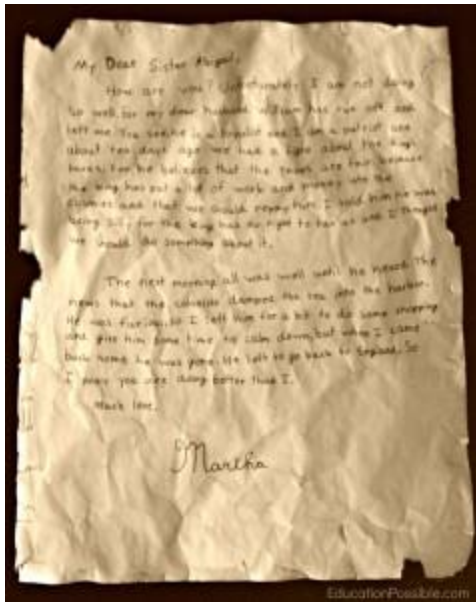 My Dear Sister Abigail,
How are you? Unfortunately I am not doing
so well, for my dear husband William has run off and
left me. You see, he is a loyalist and I am a patriot and
about ten days ago we had a fight about the kings
taxes. For he believes that the taxes are fair because
the king has put a lot of work and money into the
colonies and that we should repay him. I told him he was
being silly for the king has no right to tax us and I thought
we should do something about it.
The next morning all was well until he heard the
news that the colonists dumped the tea into the harbor.
He was furious. So I left him for a bit to do some shopping
and give him some time to calm down, but when I came
back home he was gone. He left to go back to England. So
I pray you are doing better than I.
Much love,
Martha
EducationPossible.com